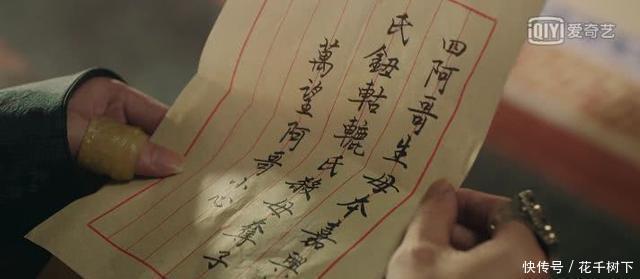 iQIYI 爱奇艺
四阿哥生母夲嘉興
氏鈕軲轆氏殺母奪子
萬望阿哥小心
快传号／花千树下